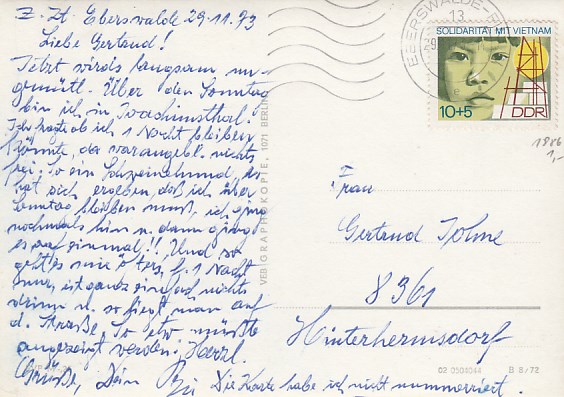 z. Zt. Eberswalde 29.11.73
Liebe Gertraud!
Jetzt wird's langsam un-
gemütl. Über den Sonntag
bin ich in Joachimsthal.
Ich fragte ob ich 1 Nacht bleiben
könnte, da war angebl. nichts
frei. So ein Schweinehund, es
hat sich ergeben, daß ich über
Sonntag bleiben muß, ich ging
nochmals hin u. dann ging
es auf einmal!! Und so
geht's mir öfters, f. 1 Nacht
nur, ist ganz einfach nichts
drinn u. so liegt man auf
d. Straße. So etw. müßte
angezeigt werden! Herzl.
Grüße, Dein
Die Karte habe ich nicht nummeriert.
VEB GRAPHOKOPIE, 1071 BERLIN
EBERSWALDE-
13
29
SOLIDARITÄT MIT VIETNAM
10+5
DDR
1886
1,-
Frau
Gertrud
8361
Hinterhermsdorf
02 0503044
B 8/72